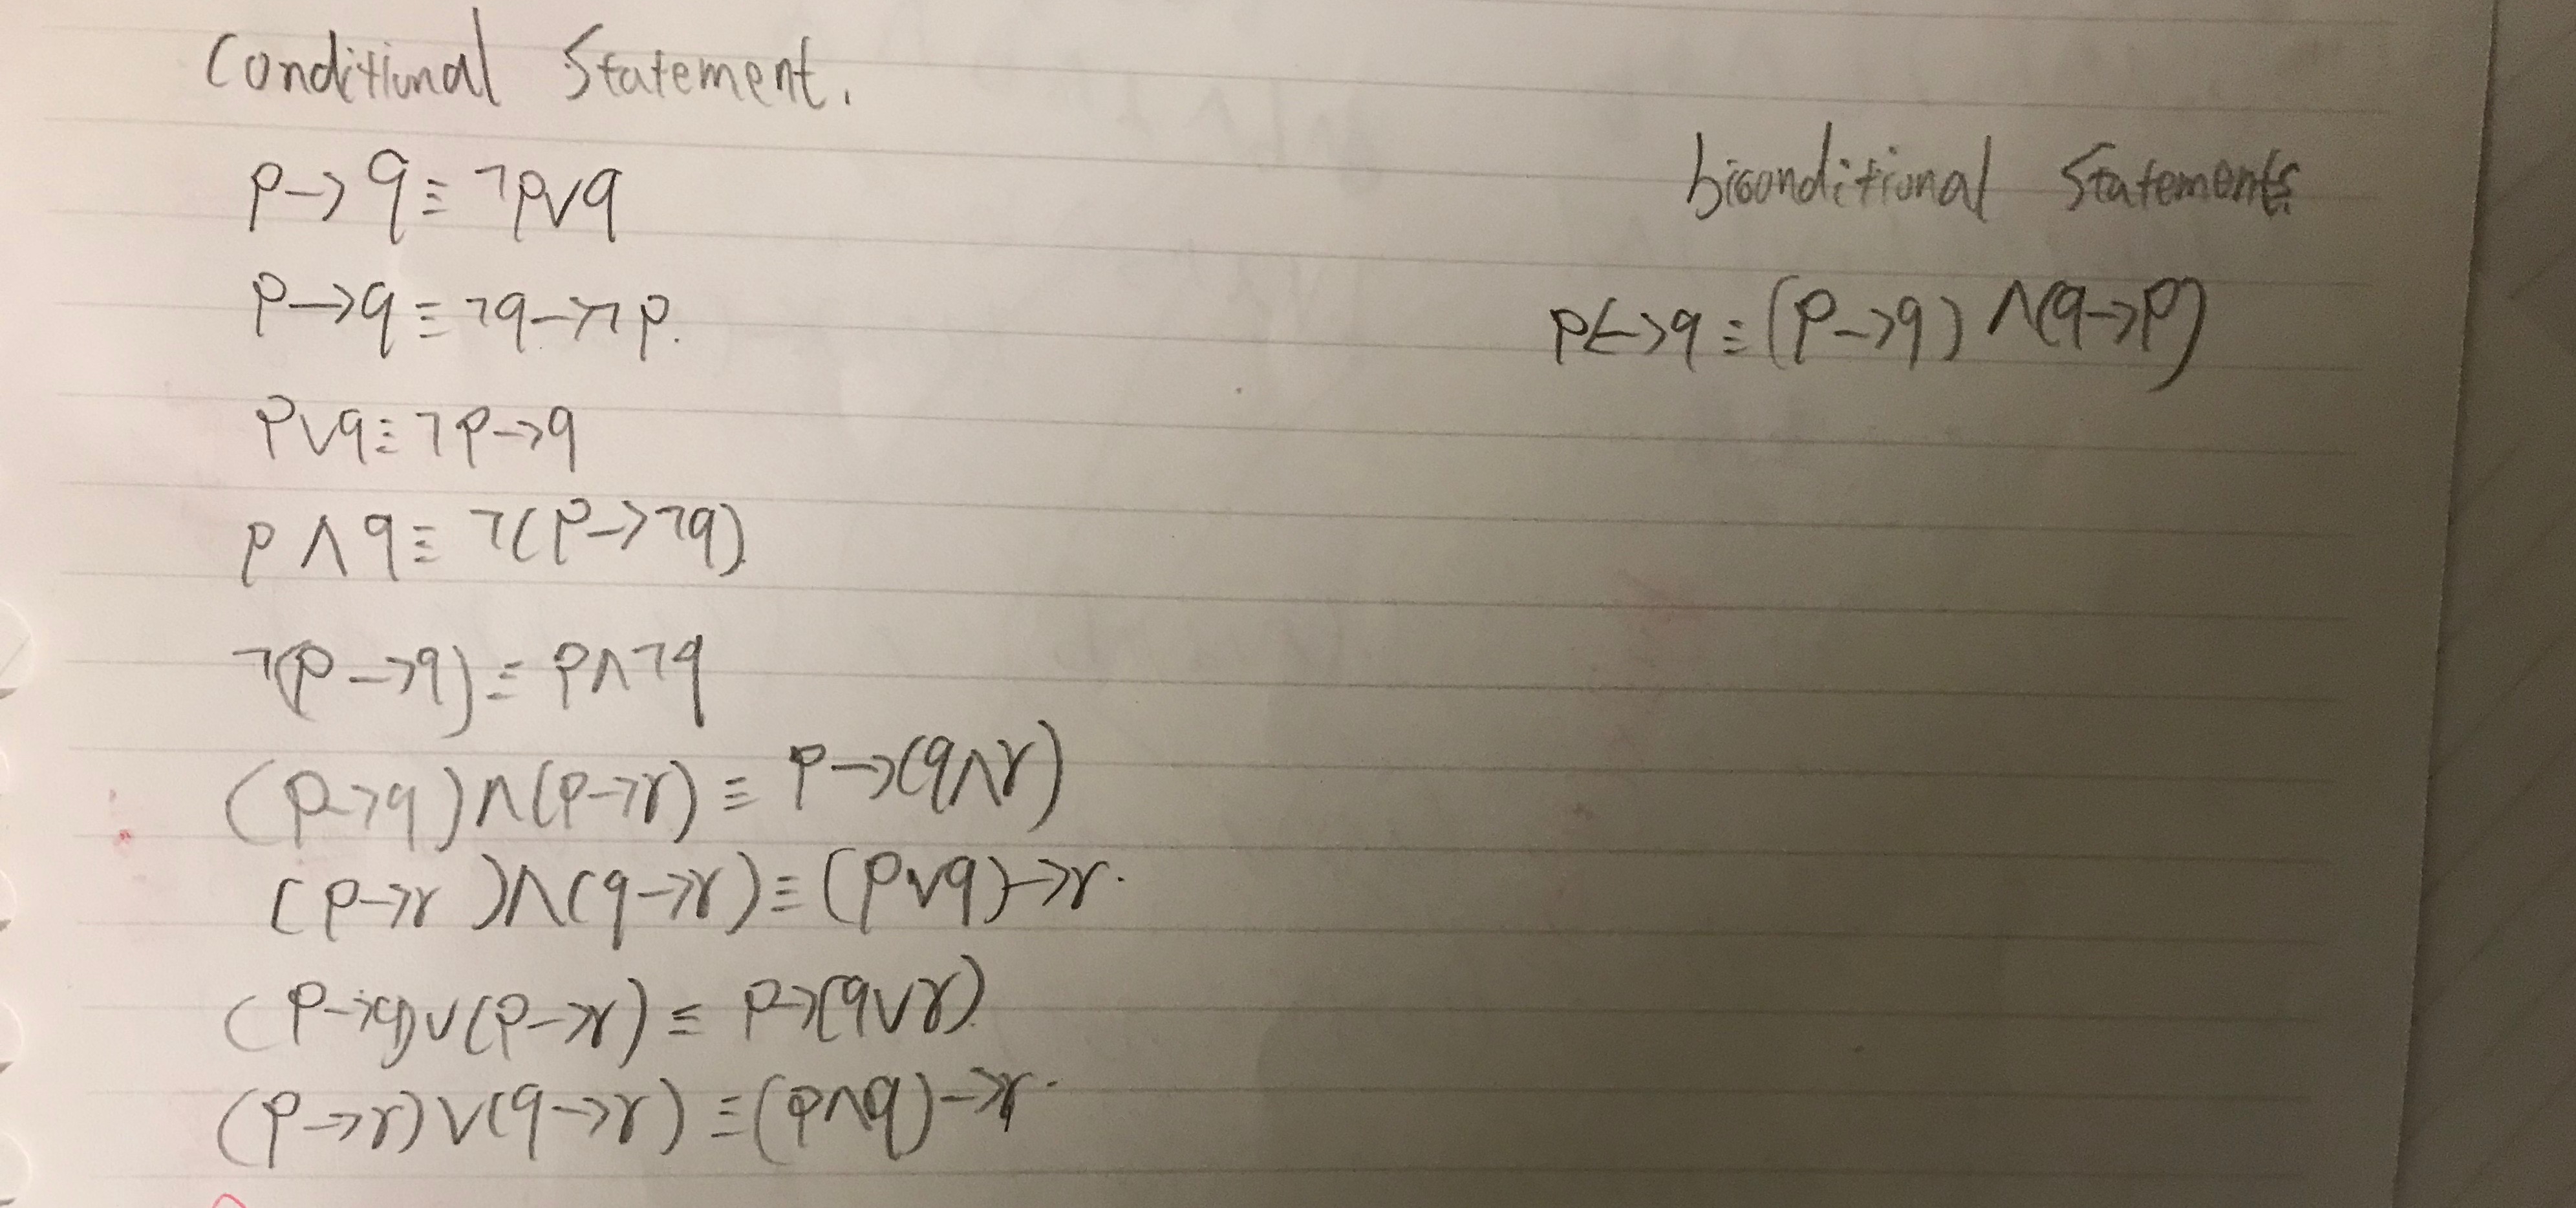 Conditional Statement.
p→q≡¬p∨q
p→q≡¬q→¬p.
p∨q≡¬p→q
p∧q≡¬(p→¬q)
¬(p→q)≡p∧¬q
(p→q)∧(p→r)≡p→(q∧r)
(p→r)∧(q→r)≡(p∨q)→r.
(p→q)∨(p→r)≡p→(q∨r)
(p→r)∨(q→r)≡(p∧q)→r.
biconditional Statements.
p↔q≡(p→q)∧(q→p)